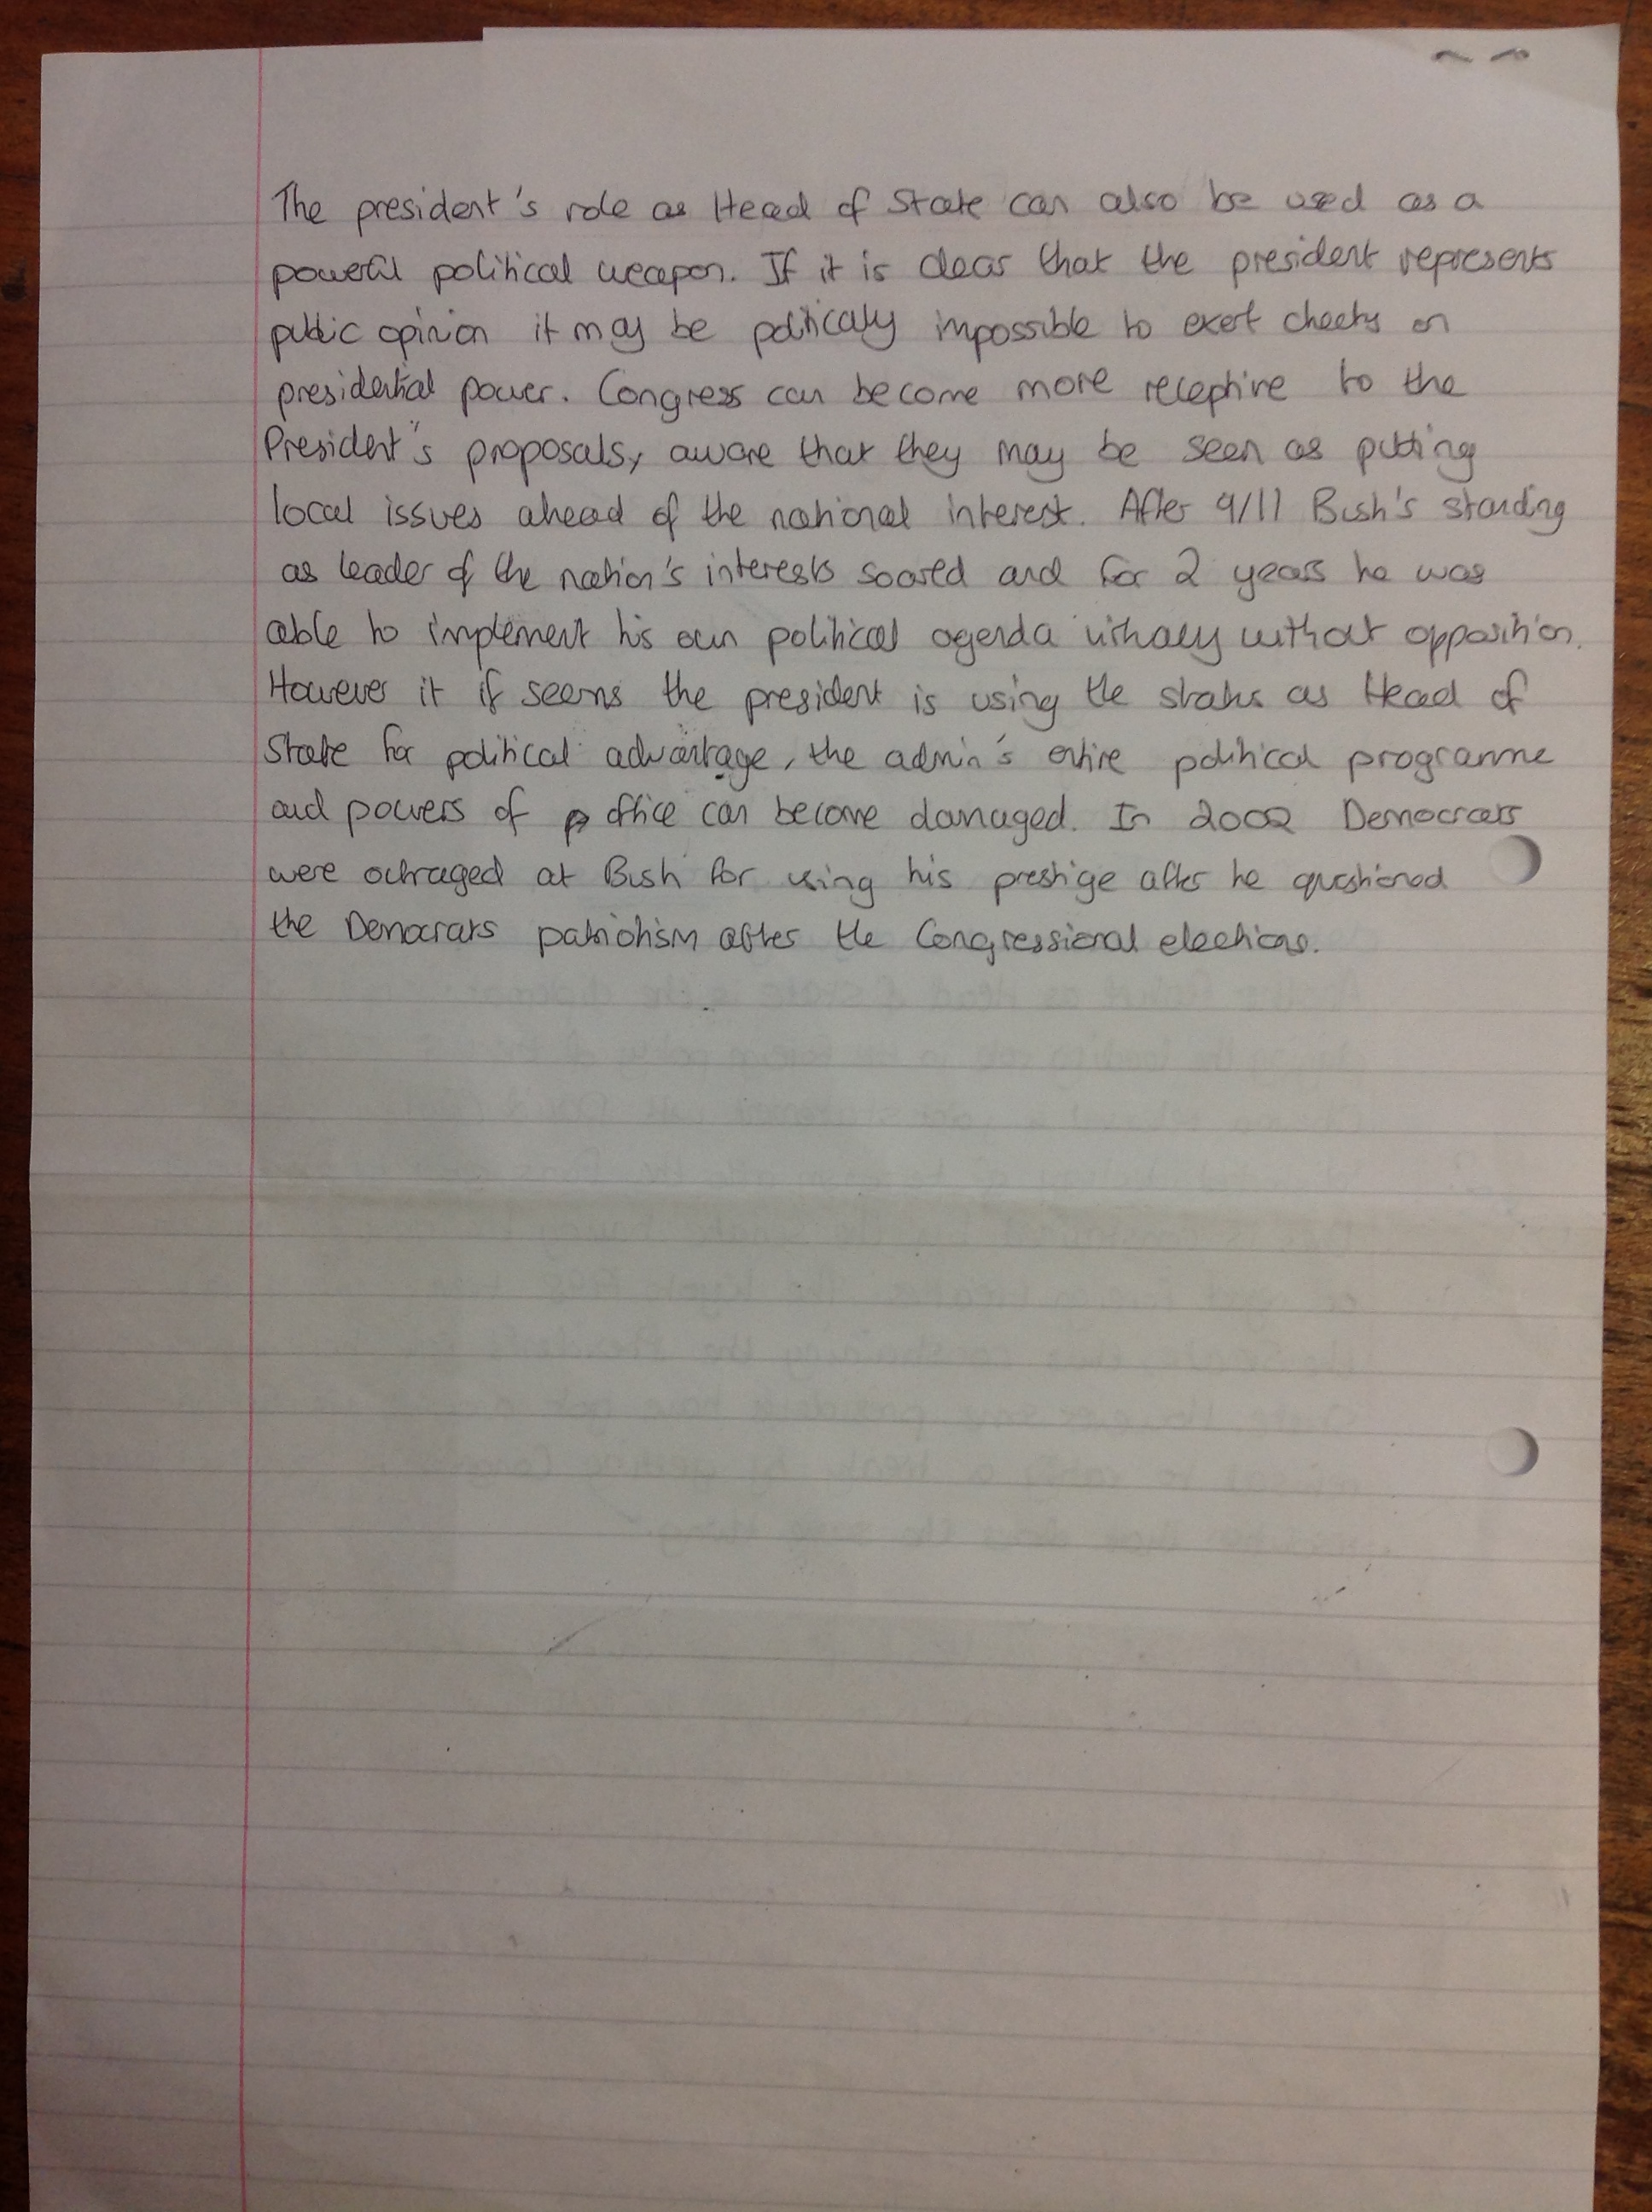 The president's role as Head of State can also be used as a
powerful political weapon. If it is clear that the president represents
public opinion it may be politically impossible to exert checks on
presidential power. Congress can become more receptive to the
President's proposals, aware that they may be seen as putting
local issues ahead of the national interest. After 9/11 Bush's standing
as leader of the nation's interests soared and for 2 years he was
able to implement his own political agenda virtually without opposition.
However it if seems the president is using the status as Head of
State for political advantage, the admin's entire political programme
and powers of office can become damaged. In 2002 Democrats
were outraged at Bush for using his prestige after he questioned
the Democrats patriotism after the Congressional elections.